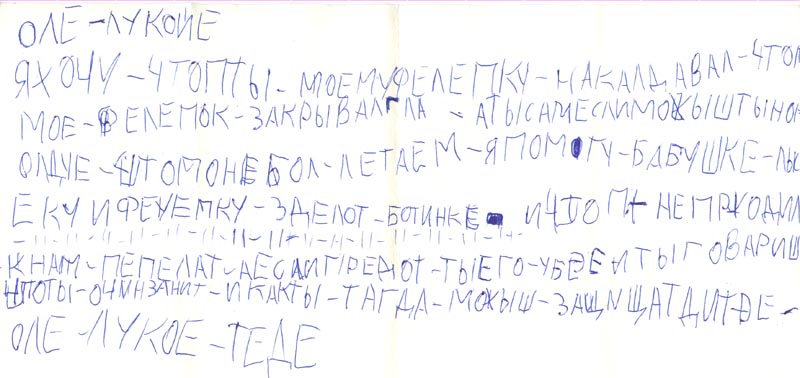 ОЛЕ-ЛУКОЙЕ
ЯХОЧУ-ЧТОПТЫ-МОЕМУФЕЛЕПКУ-НАКАЛДАВАЛ-ЧТОП
МОЕ-ФЕЛЕПОК-ЗАКРЫВАЛГЛА-АТЫСАМЕСЛИМОЖЫШТЫНОК
ОЛДУЕ-ШТОМОНЕБОЛ-ЛЕТАЕМ-ЯПОМОГУ-БАБУШКЕ-
ЕКУИФЕУЕМКУ-ЗДЕЛОТ-БОТИНКЕ ИЧТОП НЕПРХОДИЛ
КНАМ-ПЕПЕЛАТ-АЕСЛИГІРЕДОТ-ТЫЕГО-УБЕЕИТЫГОВАРИШ
ШТОТЫ-ОЧИНЗАНИТ-ИКАКТЫ-ТАГДА-МОЖЫШ-ЗАЩИЩАТДИТДЕ-
ОЛЕ-ЛУКОЕ-ТЕДЕ